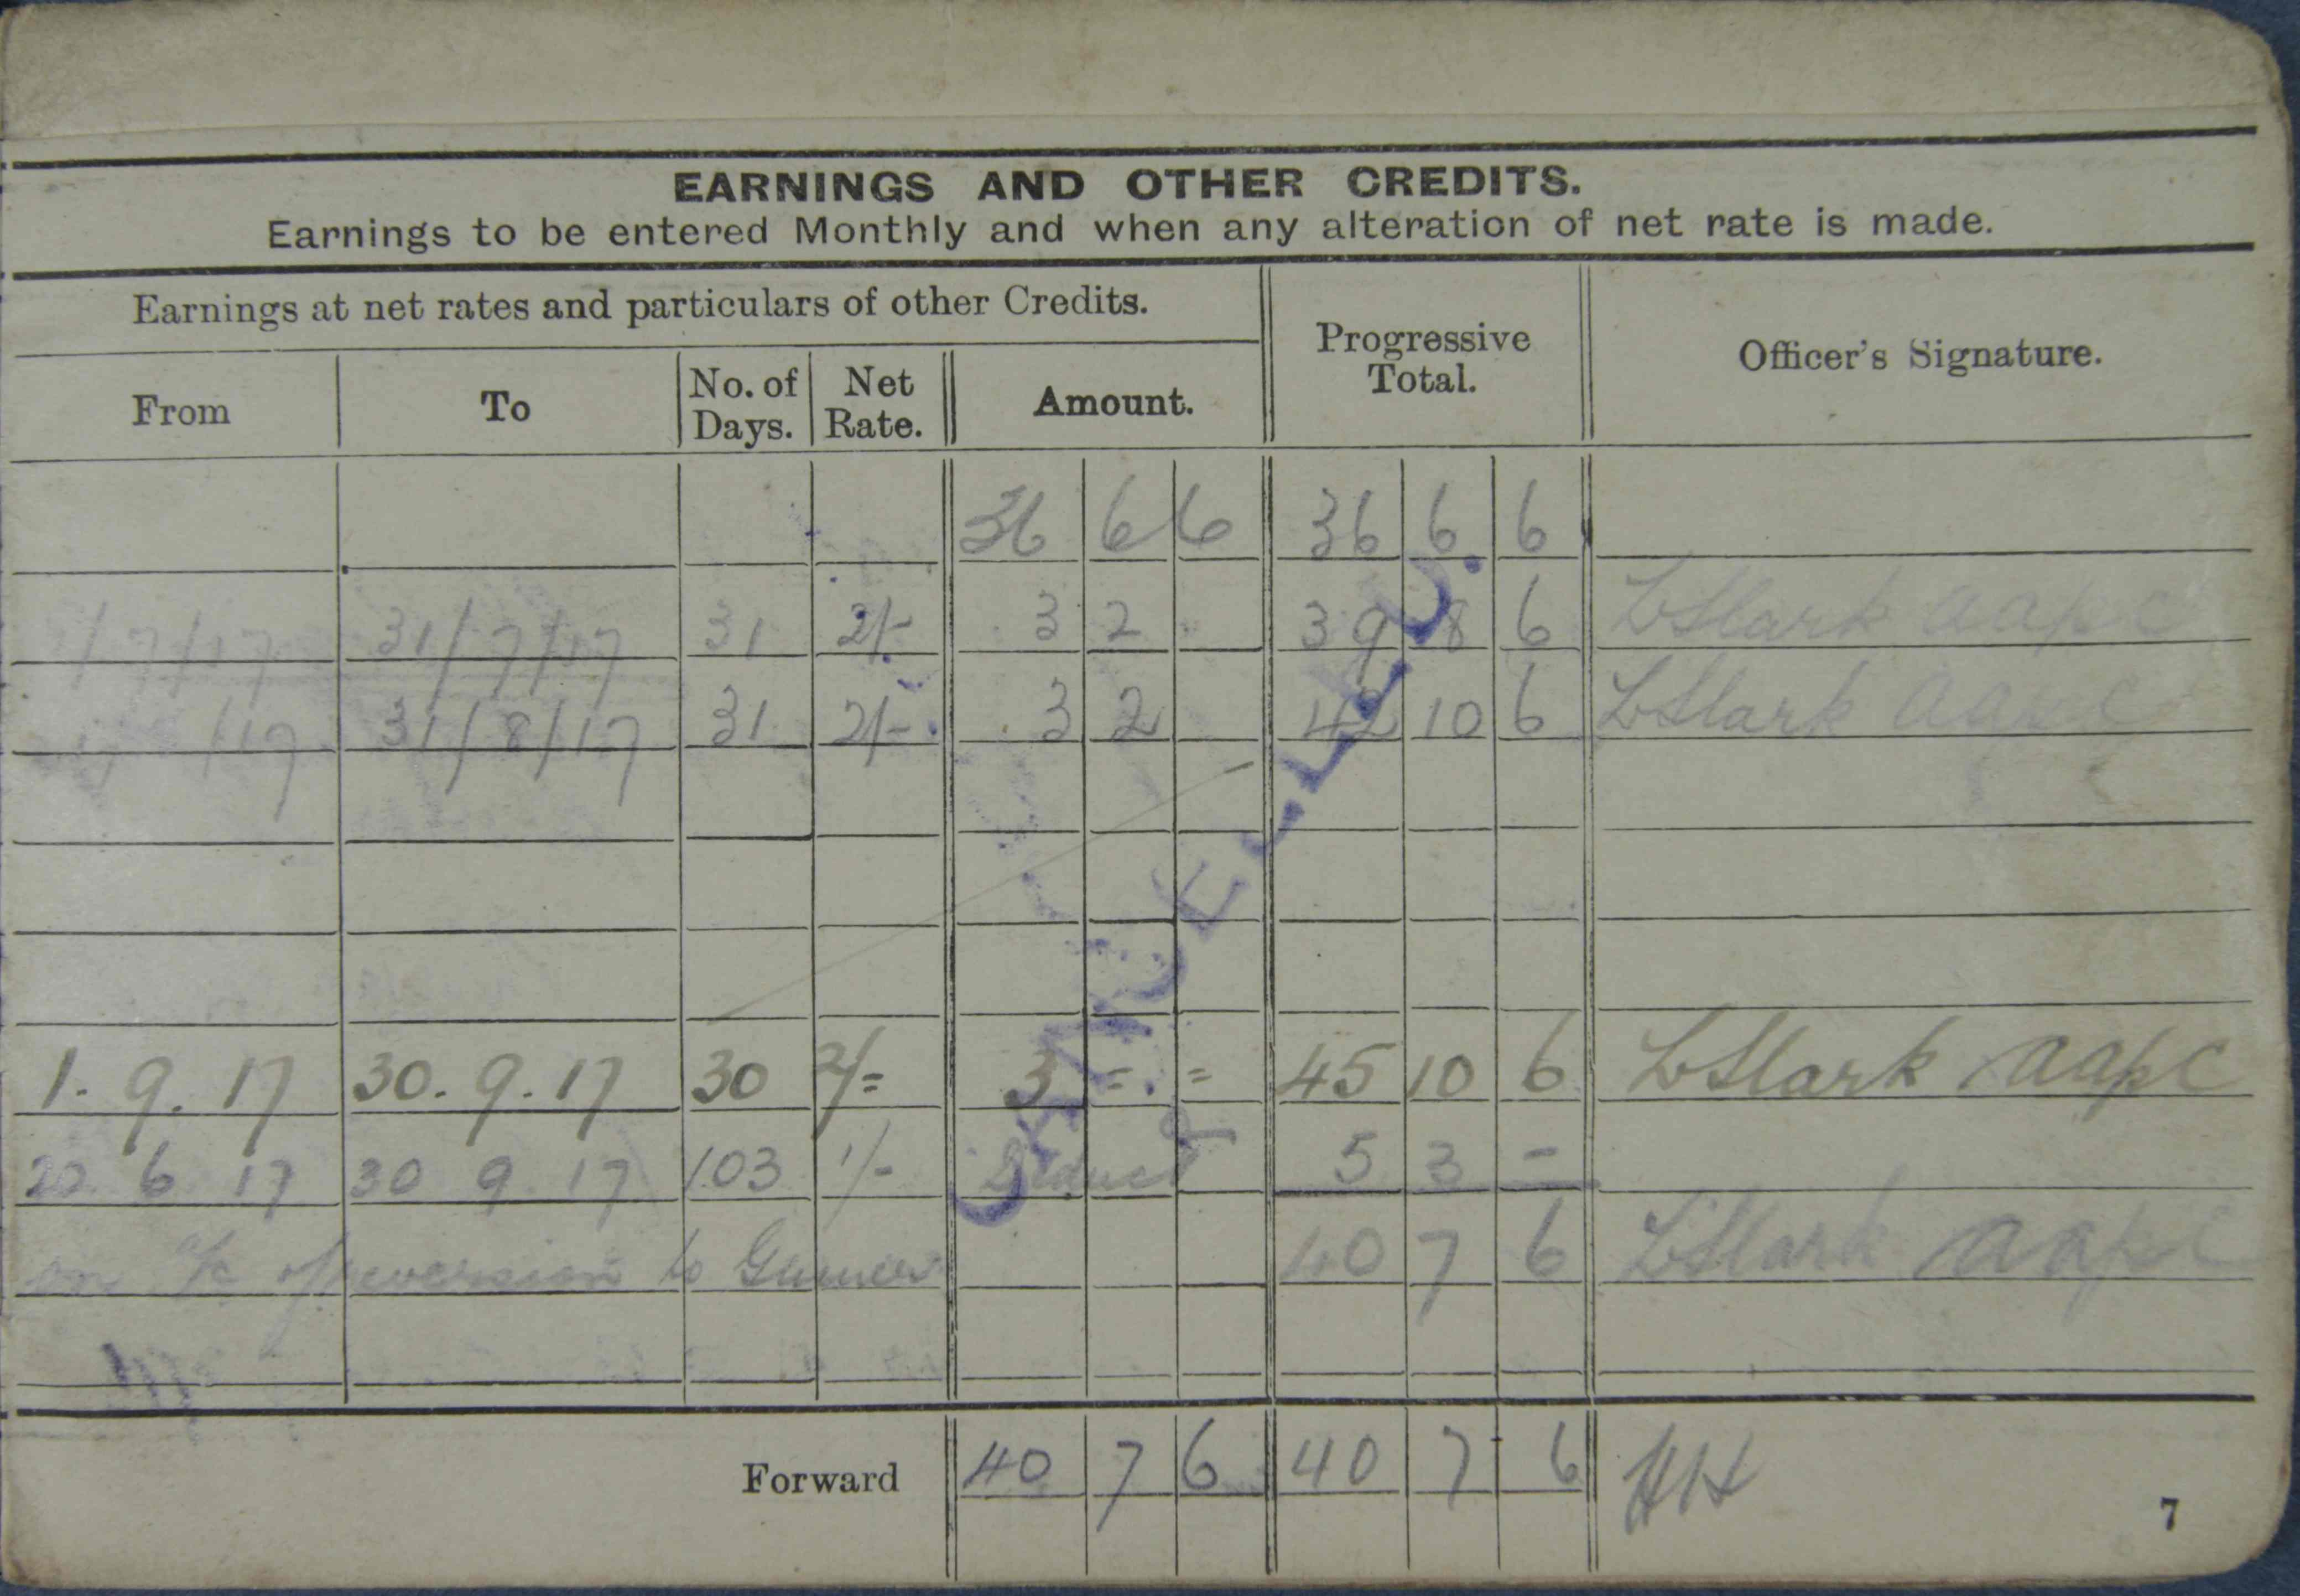 EARNINGS AND OTHER CREDITS.
Earnings to be entered Monthly and when any alteration of net rate is made.
Earnings at net rates and particulars of other Credits. Progressive Total. Officer's Signature.
From To No. of Days. Net Rate. Amount.
36 6 6 36 6 6
1/7/17 31/7/17 31 2/- 3 2 39 8 6 aapc
/17 31/8/17 31 2/- 3 2 42 10 6 aapc
1. 9. 17 30. 9. 17 30 2/= 3 = = 45 10 6 aapc
20 6 17 30 9 17 103 1/- Deduct 5 3 -
on a/c of reversion to Gunner 40 7 6 aapc
CANCELLED.
Forward 40 7 6 40 7 6 HH
7